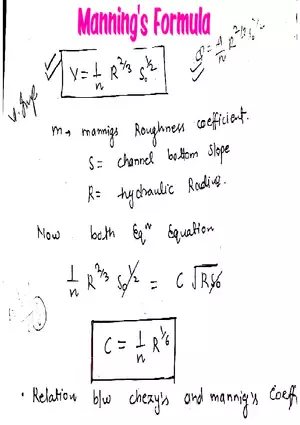 Manning's Formula
V = 1/n R^2/3 S₀^1/2
Q = A/n R^2/3 S₀^1/2
V. Imp
n → mannigs Roughness coefficient.
S = channel bottom slope
R = hydraulic Radius.
Now both Eqⁿ Equation
1/n R^2/3 S₀^1/2 = C √RS₀
C = 1/n R^1/6
• Relation b/w chezy's and mannig's Coeff